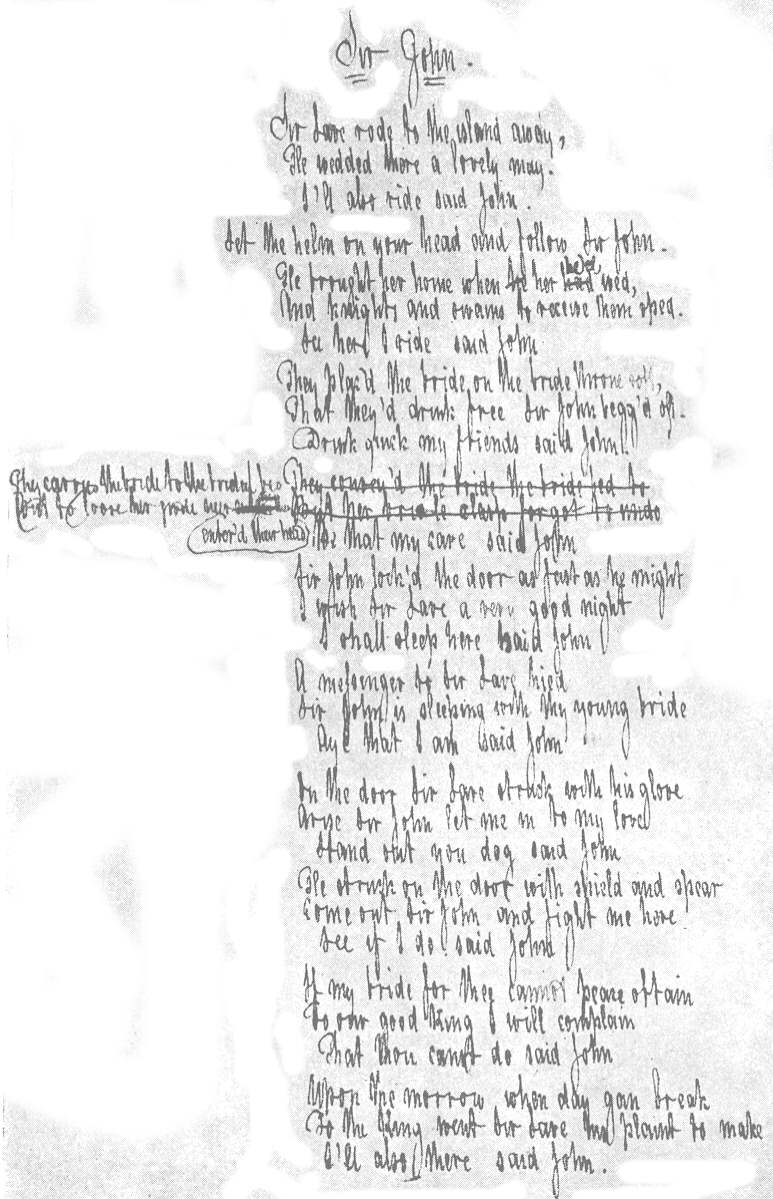 Sir John.
Sir Lave rode to the island away,
He wedded there a lovely may.
I'll also ride said John.
Set the helm on your head and follow Sir John.
He brought her home when he her he'd had wed,
And knights and swains to receive them sped.
See here I ride said John
They plac'd the bride on the bride throne soft,
That they'd drink free Sir John begg'd oft.
Drink quick my friends said John!
They carried the bride to the bridal bed
To loose her never
enter'd their head
They convey'd the bride the bride bed to
But her bridle clasp forgot to undo
Be that my care said John
Sir John lock'd the door as fast as he might
I wish Sir Lave a very good night
I shall sleep here said John
A messenger to Sir Lave hied
Sir John is sleeping with thy young bride
Aye that I am said John
On the door Sir Lave struck with his glove
Arise Sir John let me in to my love
Stand out you dog said John
He struck on the door with shield and spear
Come out Sir John and fight me here
See if I do! said John
If my bride for thee cannot peace obtain
To our good King I will complain
That thou canst do said John
Upon the morrow when day gan break
To the King went Sir Lave his plaint to make
I'll also there said John.